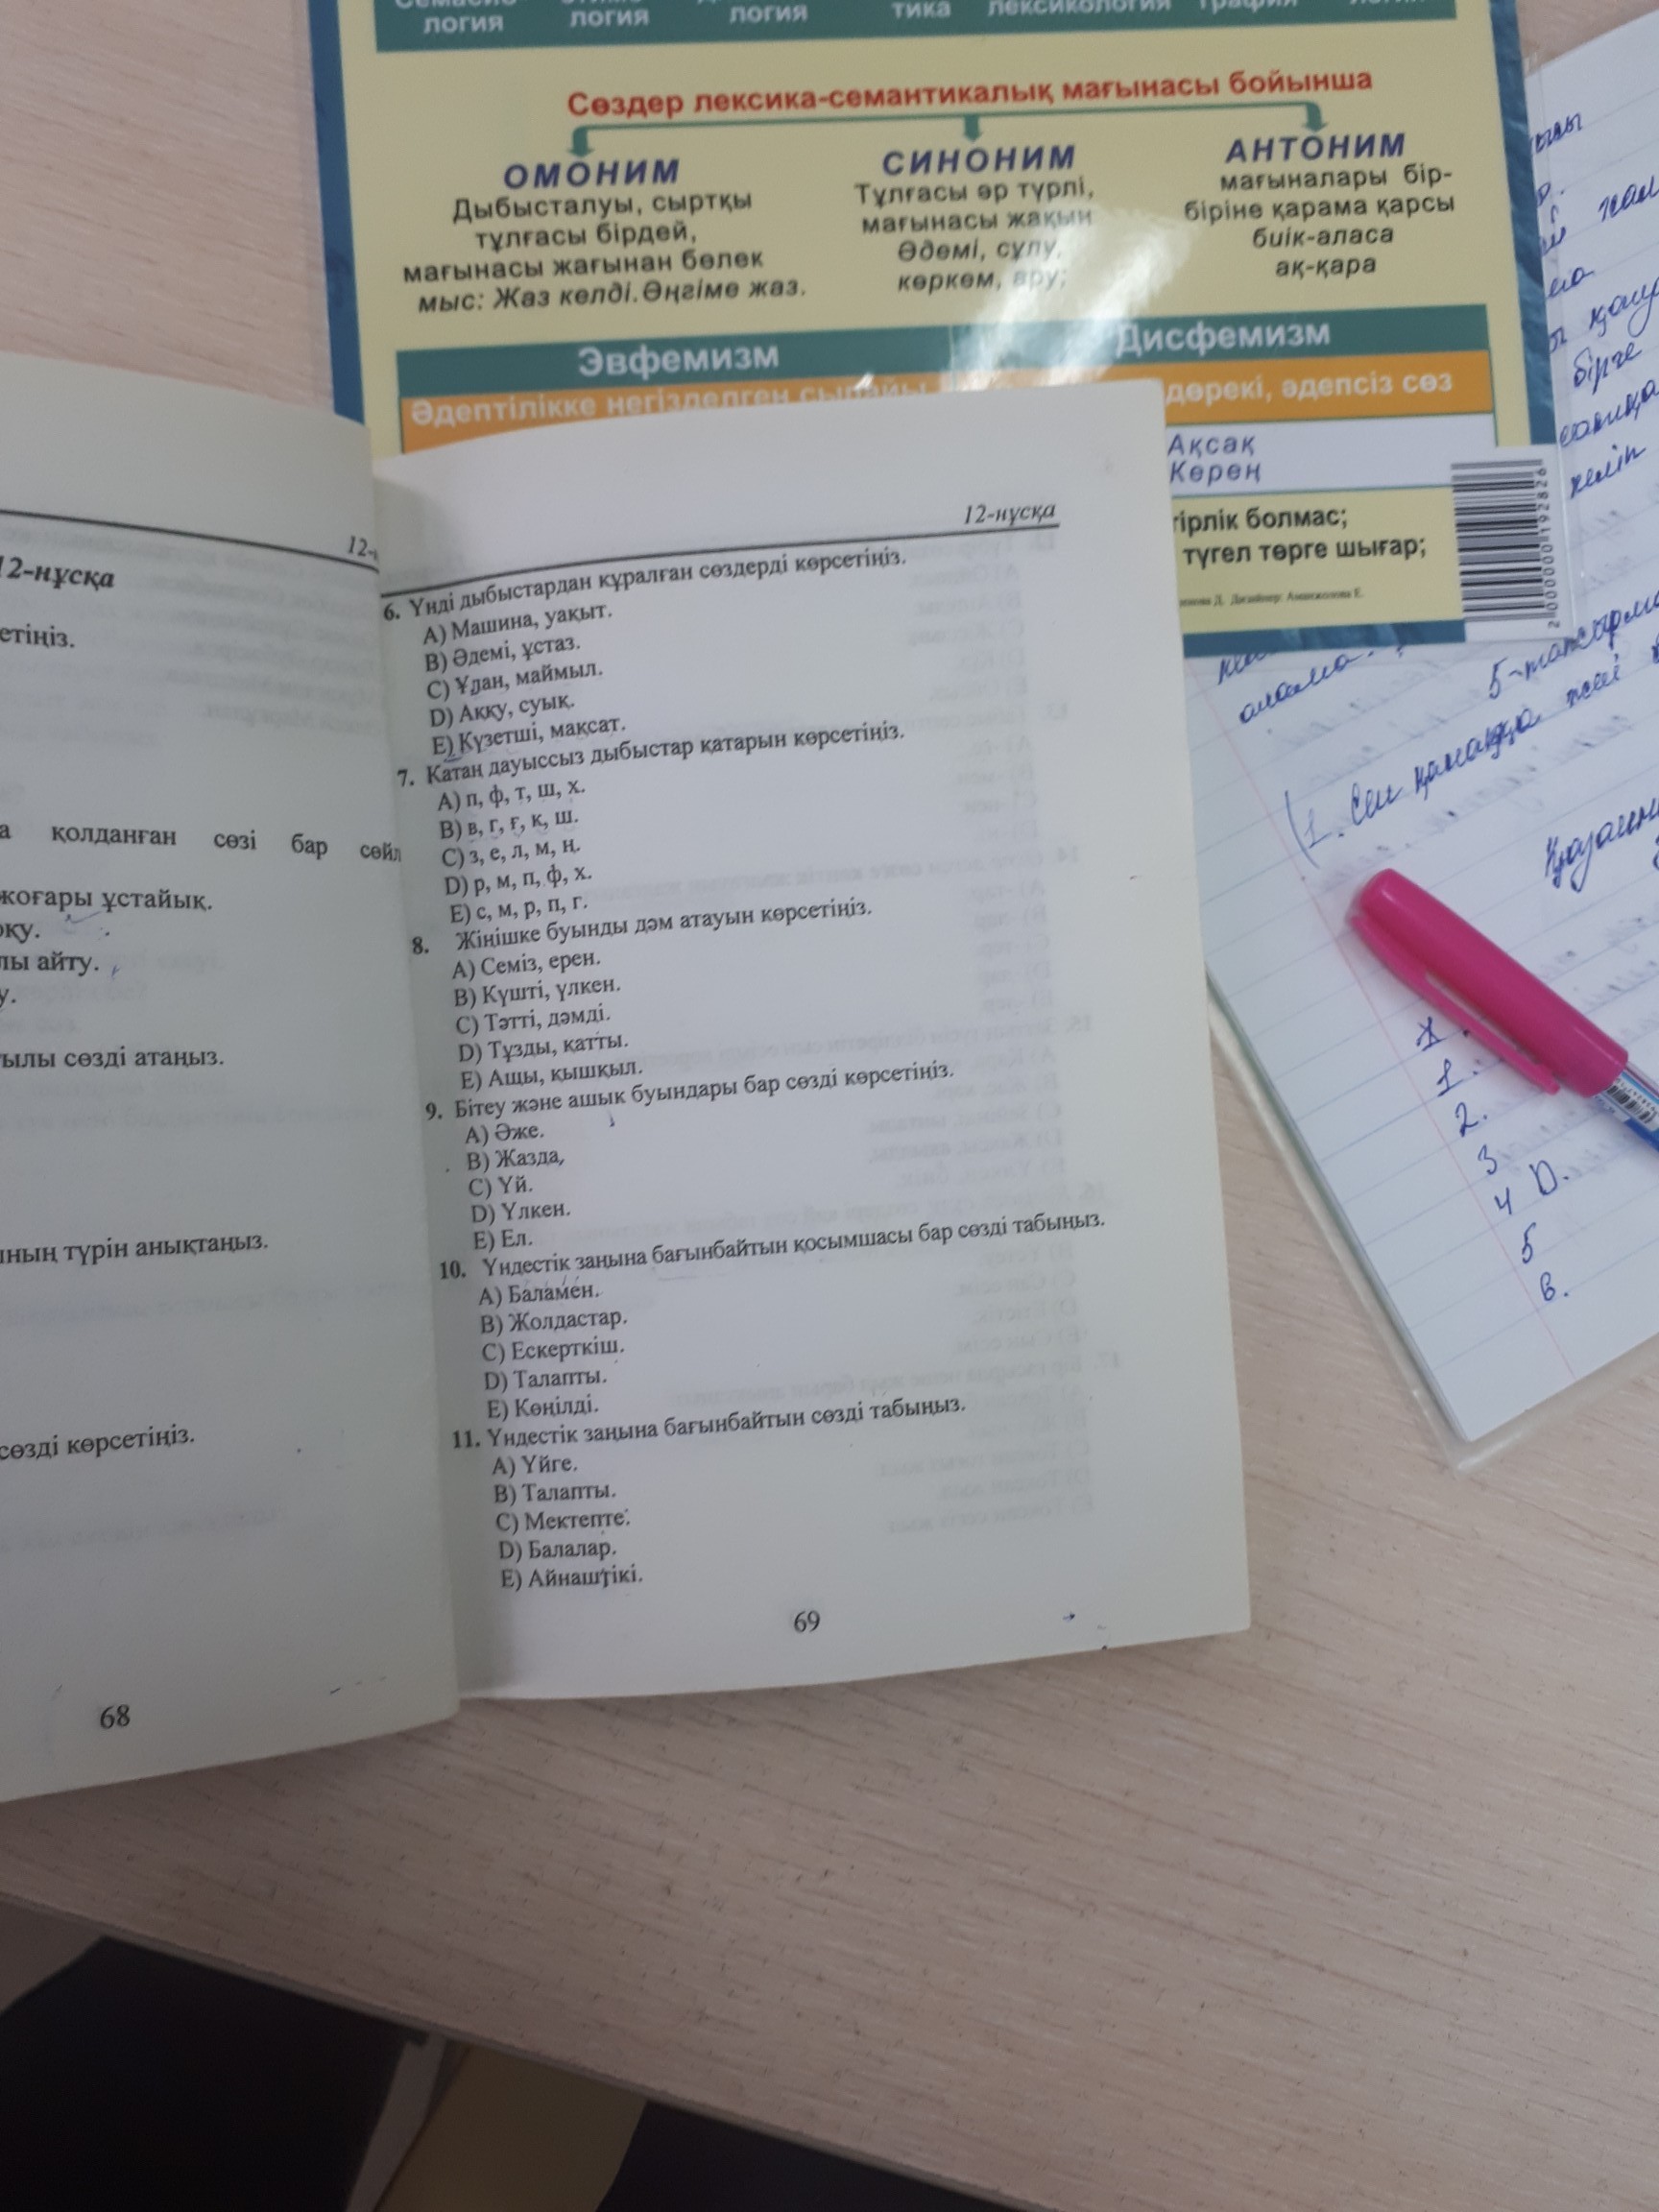 логия логия логия тика лексикология графия
Сөздер лексика-семантикалық мағынасы бойынша
ОМОНИМ
Дыбысталуы, сыртқы
тұлғасы бірдей,
мағынасы жағынан бөлек
мыс: Жаз келді.Әңгіме жаз.
СИНОНИМ
Тұлғасы әр түрлі,
мағынасы жақын
Әдемі, сұлу,
көркем, ару;
АНТОНИМ
мағыналары бір-
біріне қарама қарсы
биік-аласа
ақ-қара
Эвфемизм
Дисфемизм
Әдептілікке негізделген сыпайы
дөрекі, әдепсіз сөз
Ақсақ
Керең
тірлік болмас;
түгел төрге шығар;
2000000192826
12-нұсқа
етіңіз.
а қолданған сөзі бар сөйл
жоғары ұстайық.
оқу.
лы айту.
у.
ғылы сөзді атаңыз.
ының түрін анықтаңыз.
сөзді көрсетіңіз.
68
12-нұсқа
6. Үнді дыбыстардан құралған сөздерді көрсетіңіз.
А) Машина, уақыт.
В) Әдемі, ұстаз.
С) Ұлан, маймыл.
D) Аққу, суық.
Е) Күзетші, мақсат.
7. Қатаң дауыссыз дыбыстар қатарын көрсетіңіз.
А) п, ф, т, ш, х.
В) в, г, ғ, к, ш.
С) з, е, л, м, ң.
D) р, м, п, ф, х.
Е) с, м, р, п, г.
8. Жіңішке буынды дәм атауын көрсетіңіз.
А) Семіз, ерен.
В) Күшті, үлкен.
С) Тәтті, дәмді.
D) Тұзды, қатты.
Е) Ащы, қышқыл.
9. Бітеу және ашық буындары бар сөзді көрсетіңіз.
А) Әже.
В) Жазда,
С) Үй.
D) Үлкен.
Е) Ел.
10. Үндестік заңына бағынбайтын қосымшасы бар сөзді табыңыз.
А) Баламен.
В) Жолдастар.
С) Ескерткіш.
D) Талапты.
Е) Көңілді.
11. Үндестік заңына бағынбайтын сөзді табыңыз.
А) Үйге.
В) Талапты.
С) Мектепте.
D) Балалар.
Е) Айнаштікі.
69
бірге
келіп
5-тапсырма
1. Сен
1.
2.
3
4 D.
5
6.